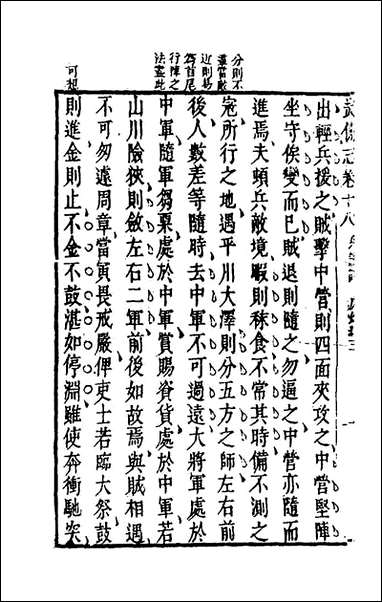 武備志卷十八
出輕兵援之賊擊中營則四面夾攻之中營堅陣
坐守俟變而已賊退則隨之勿逼之中營亦隨而
進焉夫頓兵敵境暇則秣食不常其時備不測之
寇所行之地遇平川大澤則分五方之師左右前
後人數差等隨時去中軍不可過遠大將軍處於
中軍隨軍芻粟處於中軍賞賜資貨處於中軍若
山川險狹則斂左右二軍前後如故焉與賊相遇
不可匆遽周章當寅畏戒嚴俾吏士若臨大祭鼓
則進金則止不金不鼓湛如停淵雖使奔衝馳突
分則不
近則易
爲首尾
行陣之
法盡此
可想